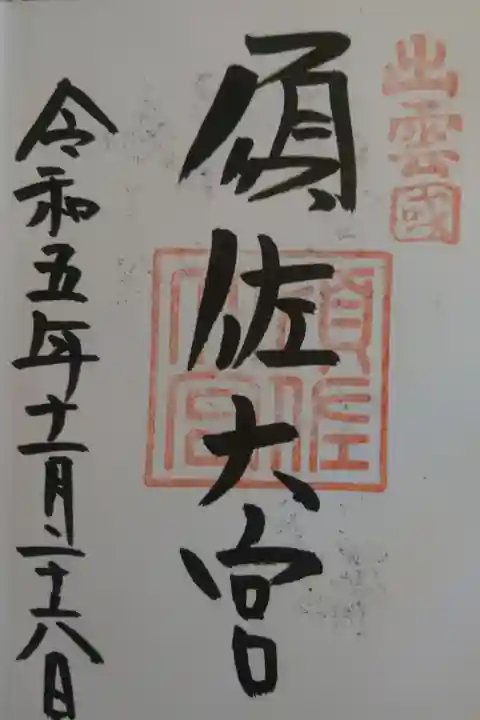 出雲國
須佐大宮
須佐
大宮
令和五年十一月二十八日